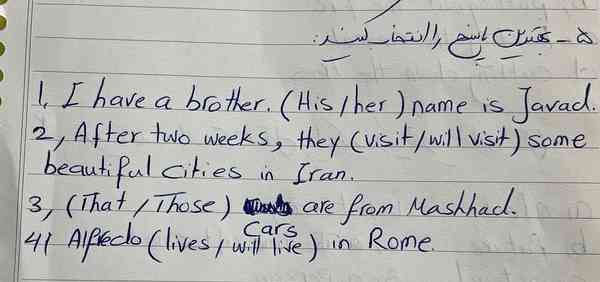 ۵ - بهترین پاسخ را انتخاب کنید:
1, I have a brother. (His / her) name is Javad.
2, After two weeks, they (visit / will visit) some
beautiful cities in Iran.
3, (That / Those) are from Mashhad.
Cars
4) Alfredo (lives / will live) in Rome.